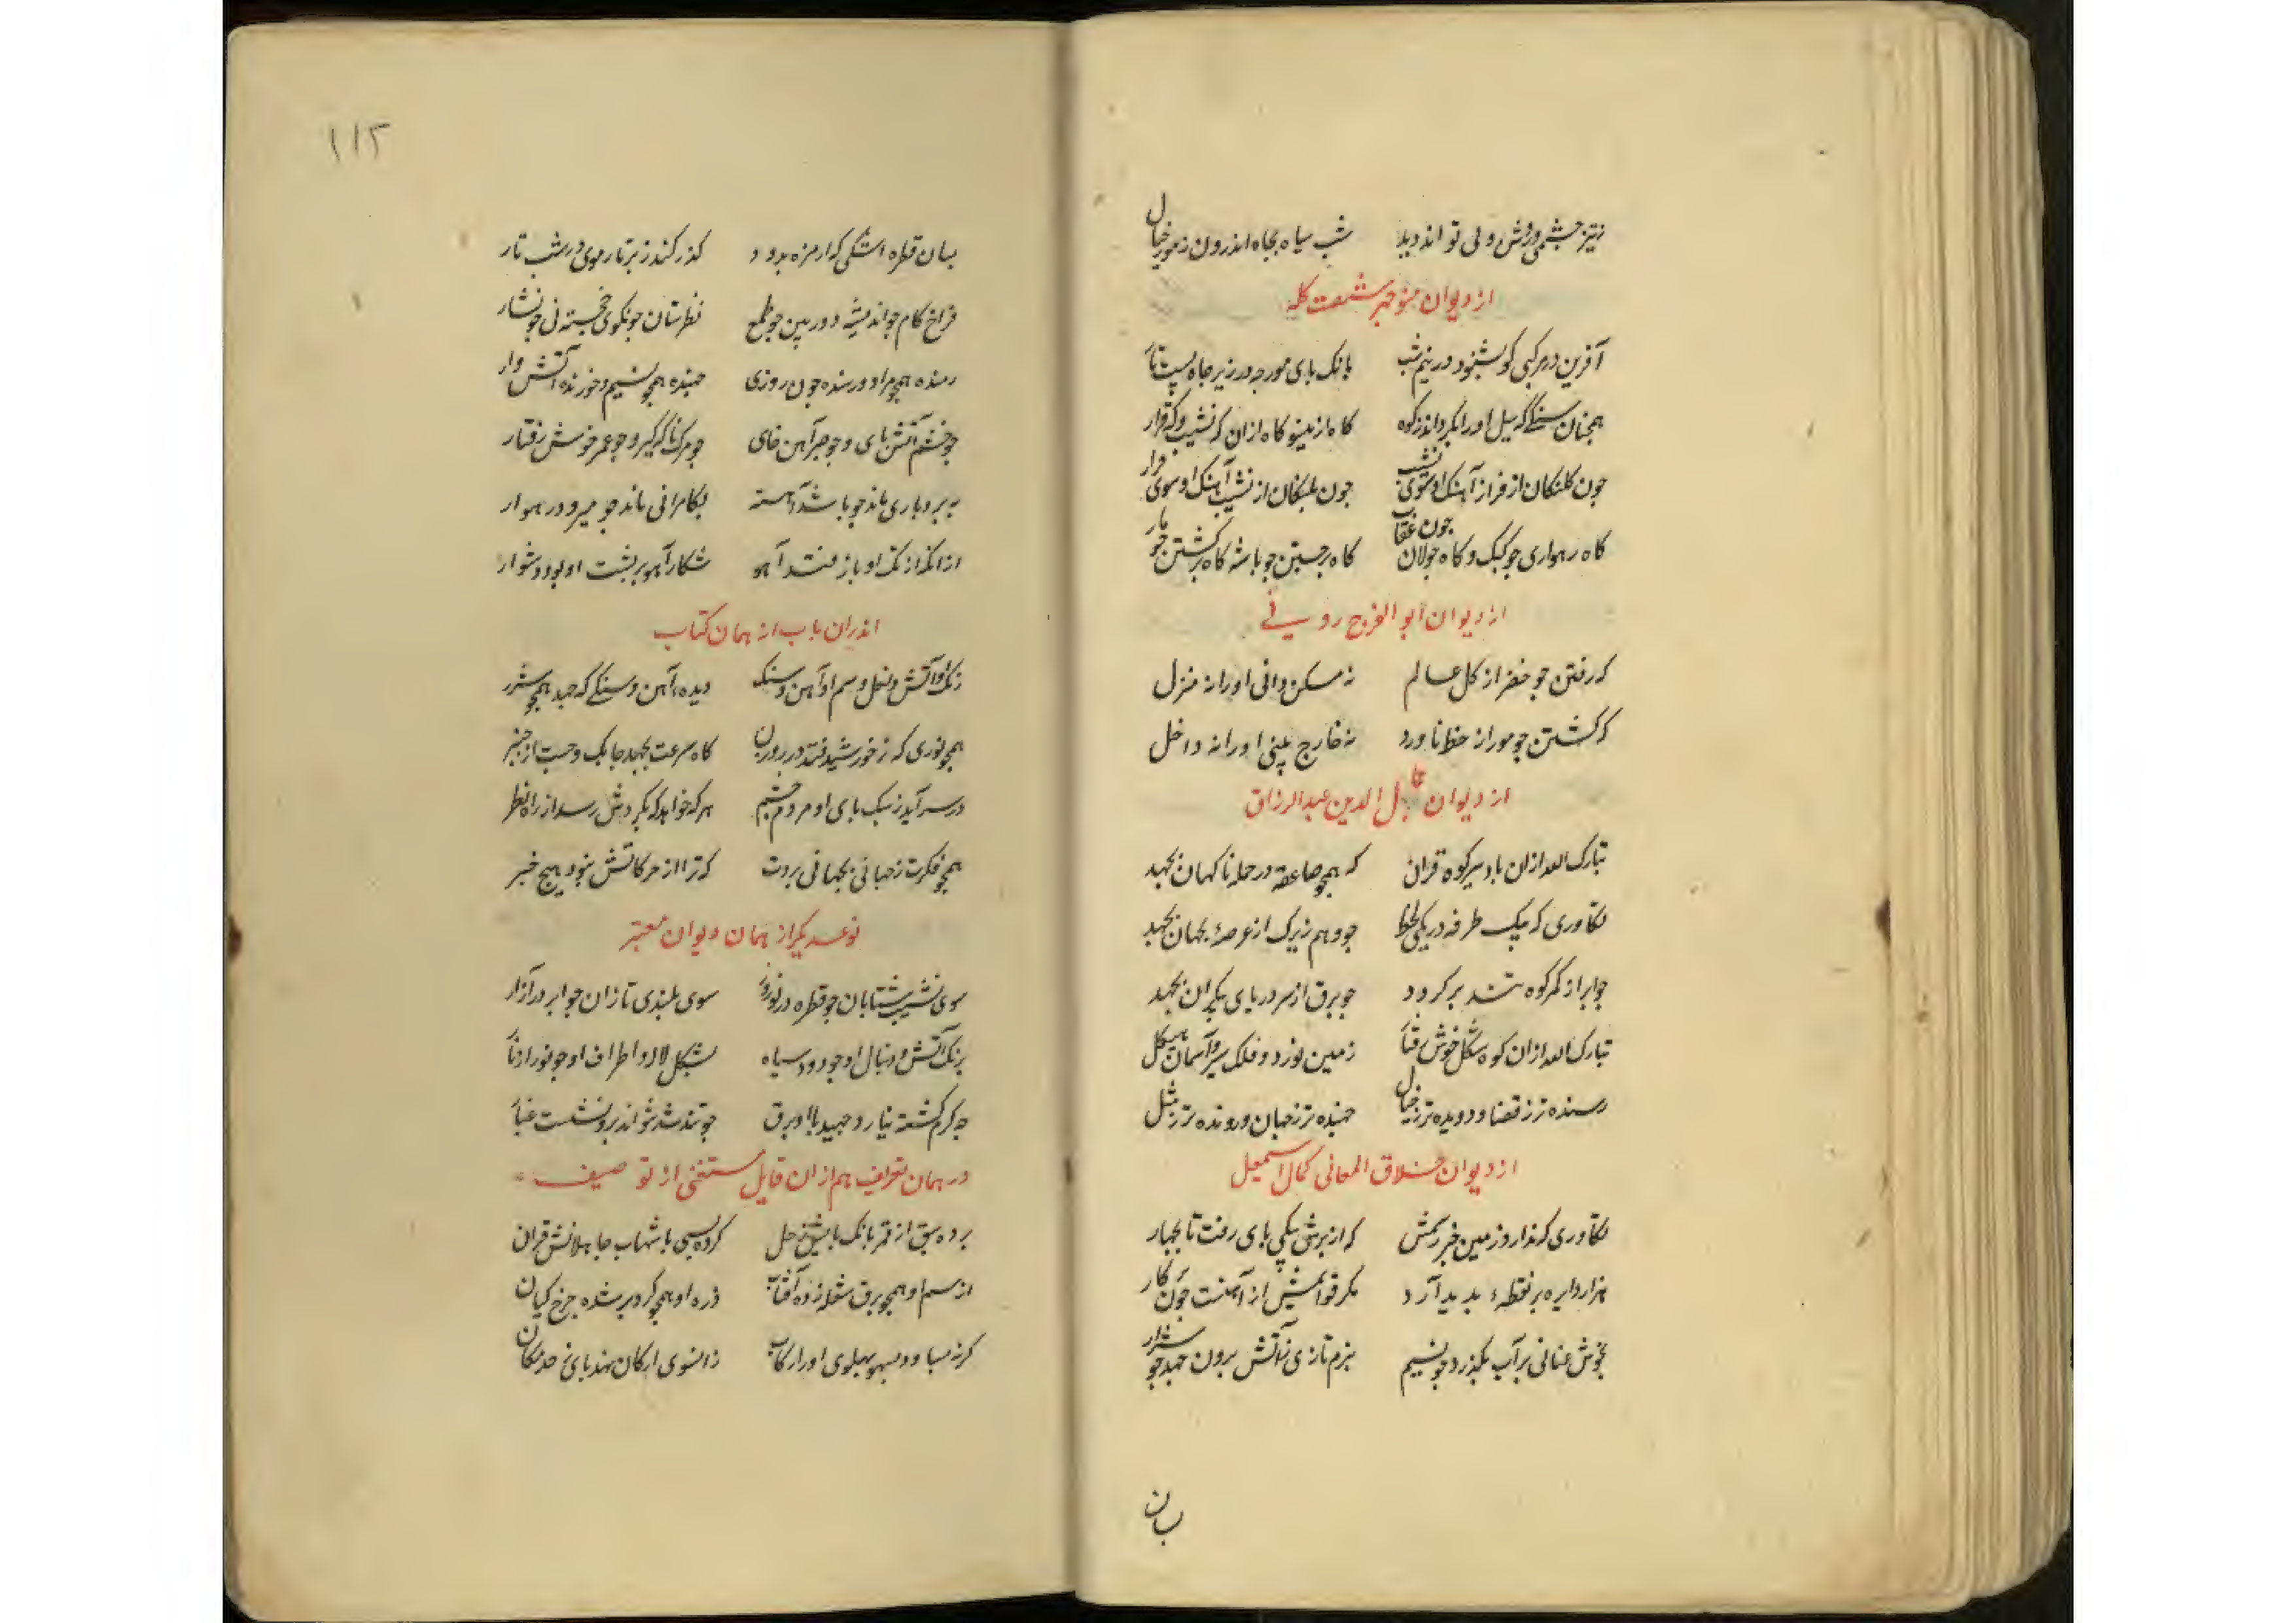 ز تیز چشمی و روش ولی تواند دید
شب سیاه بجاه اندرون ز مور خیال
از دیوان منوجهر شصت کله
آفرین در مرکبی کو بشنود در نیم شب
بانک بای مورجه در زیر جاه شصت باز
همجنان سنکی که سیل او را بکرداند ز کوه
کاه زان سو کاه ازان که نشیب و که فراز
جون کلنکان از فراز آهنک او سوی نشیب
جون بلنکان از نشیب آهنک او سوی فراز
کاه رهواری جو کبک و کاه جولان جون عقاب
کاه برجستن جو باشه کاه برکشتن جو مار
از دیوان ابو الفرج رونی
که رفتن جو خضر از کل عالم
نه مسکن دانی او را نه منزل
که کشتن جو مور از خط ناورد
نه خارج بینی او را نه داخل
از دیوان جمال الدین عبدالرزاق
تبارک الله ازان باد سیر کوه قران
که همجو صاعقه در حمله ناکهان بجهد
تکاوری که بیک طرفه در یکی لحظه
جو وهم زیرک از عرصهٔ جهان بجهد
جو ابر از کمر کوه تند بر کردد
جو برق از سر دریای بیکران بجهد
تبارک الله ازان کوه شکل خوش رفتار
زمین نورد و فلک سیر و آسمان هیکل
رسنده تر ز قضا و دونده تر ز خیال
جهنده تر ز جهان و رونده تر ز مثل
از دیوان خلاق المعانی کمال اسمعیل
تکاوری که ندارد زمین خبر ز تکش
که از برش بیکی بای رفت تا بجهار
هزار دایره بر نقطهٔ بدید آرد
مکر قوایمش از آهنست جون برکار
بخوش عنانی بر آب بکذرد جو نسیم
بنرم تازی ز آتش برون جهد جو شرار
بسان
۱۱۲
بسان قطره اشکی که از مزه بدود
کذر کند ز بر تار موی در شب تار
فراخ کام جو اندیشه دوربین جو طمع
نظرستان جو نکوی خجسته بی جو نشار
رمنده همجو مراد و رسنده جون روزی
جهنده همجو نسیم و خورنده آتش وار
جو خشم آتش بای و جو صبر آهن خای
جو مرک ناکه کیر و جو عمر خوش رفتار
به بردباری ماند جو باشد آهسته
بکامرانی ماند جو میرود رهوار
ازانکه از تک او باز ماند آهو
شکار آهو بر بشت او بود دشوار
اندران باب از همان کتاب
رنک او آتش و نعل و سم او آهن و سنک
دیدهٔ آهن و سنکی که جهد همجو شرر
همجو نوری که ز خورشید فتد در روزن
کاه سرعت بجهد جابک و جست از جنبر
در سر آید ز سبک بای او مردم جشم
هر که خواهد که بکردش رسد از راه نظر
همجو فکرت ز جهانی بجهانی بردت
که ترا از حرکاتش نبود هیج خبر
نوعدیکر از همان دیوان معتبر
سوی نشیب شتابان جو قطره در نوروز
سوی بلندی تازان جو ابر در آزار
برنک آتش و دنبال او جو دود سیاه
بشکل لاله و اطراف او جو نور از نار
جو کرم کشته نیارد جهید با او برق
جو تند شد نتواند برو نشست غبار
در همان تعریف هم ازان قایل مستغنی از توصیف
برده سبق از قمر بانک بایش زحل
کرده بسی با شهاب جا هلانش قران
از سم او همجو برق شعله زده آفتاب
ذره او همجو کرد بر شده جرخ کیان
کر نه صبا و دبور بهلوی او را رکاب
زانسوی ارکان نهد بای ز حد مکان